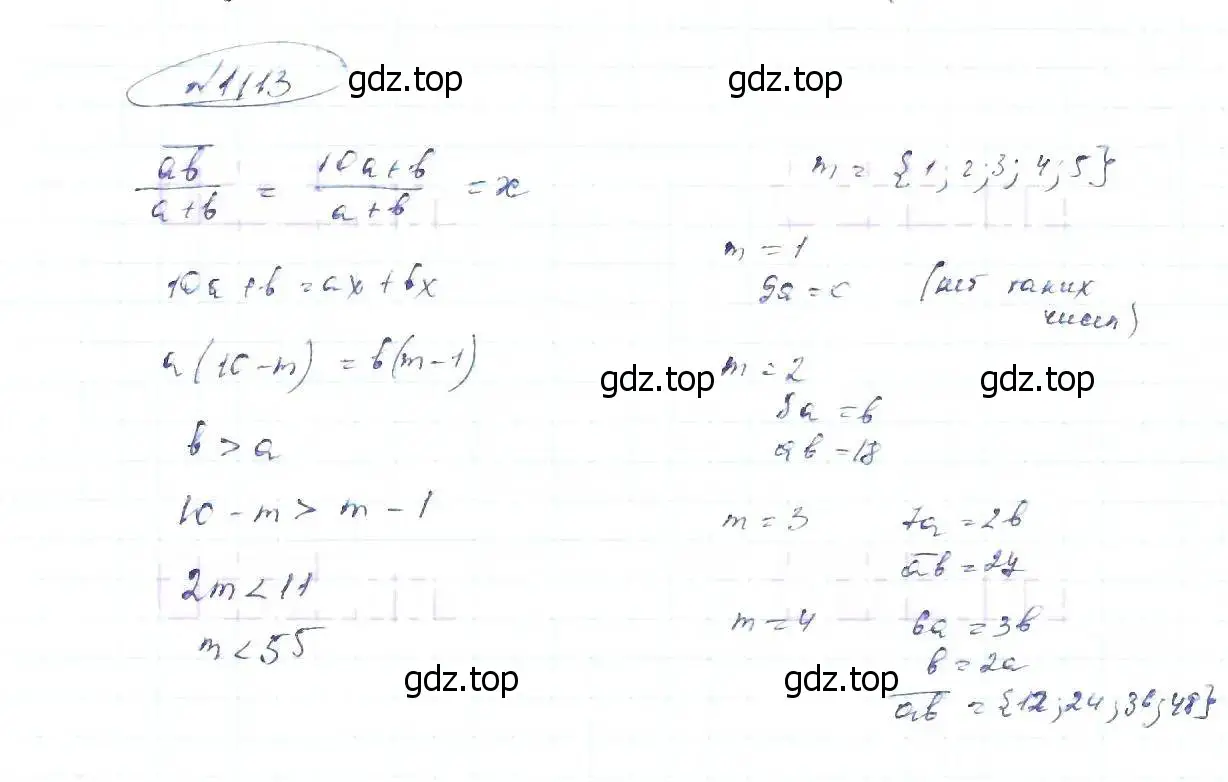 №1113
gdz.top
gdz.top
ab/(a+b) = (10a+b)/(a+b) = x
10a+b=ax+bx
a(10-m) = b(m-1)
b > a
10 - m > m - 1
2m < 11
m < 5 5
m = {1; 2; 3; 4; 5}
m = 1
9a = 0 (нет таких
чисел)
gdz.top
gdz.top
m = 2
8a = b
ab = 18
m = 3 7a = 2b
ab = 27
m = 4 6a = 3b
b = 2a
ab = {12; 24; 36; 48}
gdz.top
gdz.top